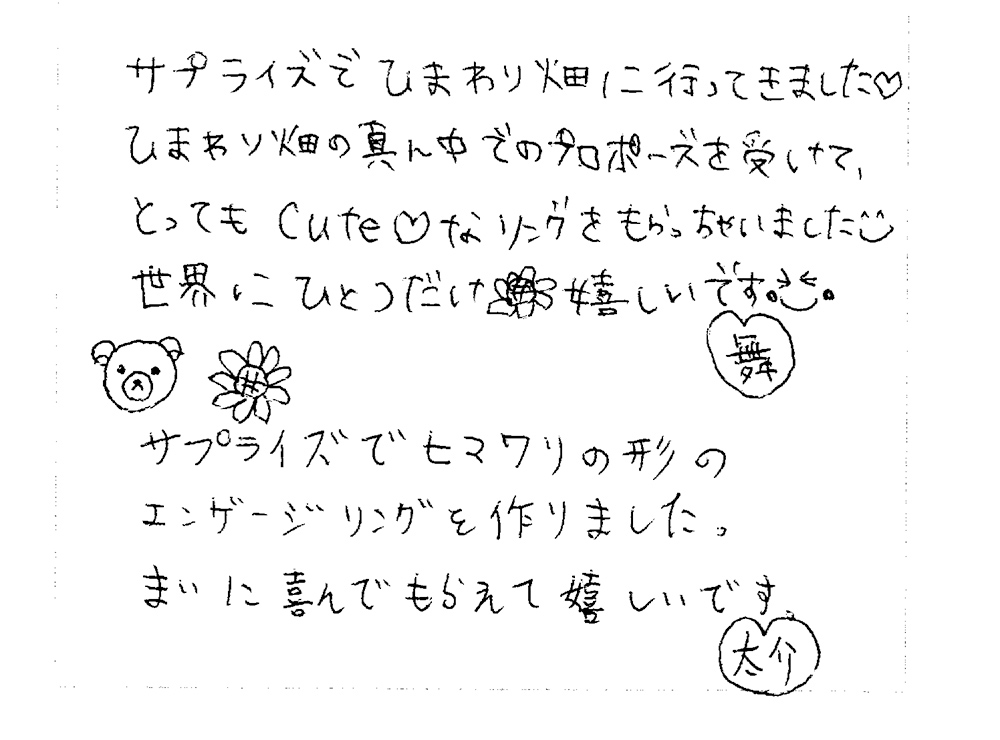 サプライズでひまわり畑に行ってきました♡
ひまわり畑の真ん中でのプロポーズを受けて、
とってもCute♡なリングをもらっちゃいました
世界にひとつだけ 嬉しいです。
舞
サプライズでヒマワリの形の
エンゲージリングを作りました。
まいに喜んでもらえて嬉しいです。
太介